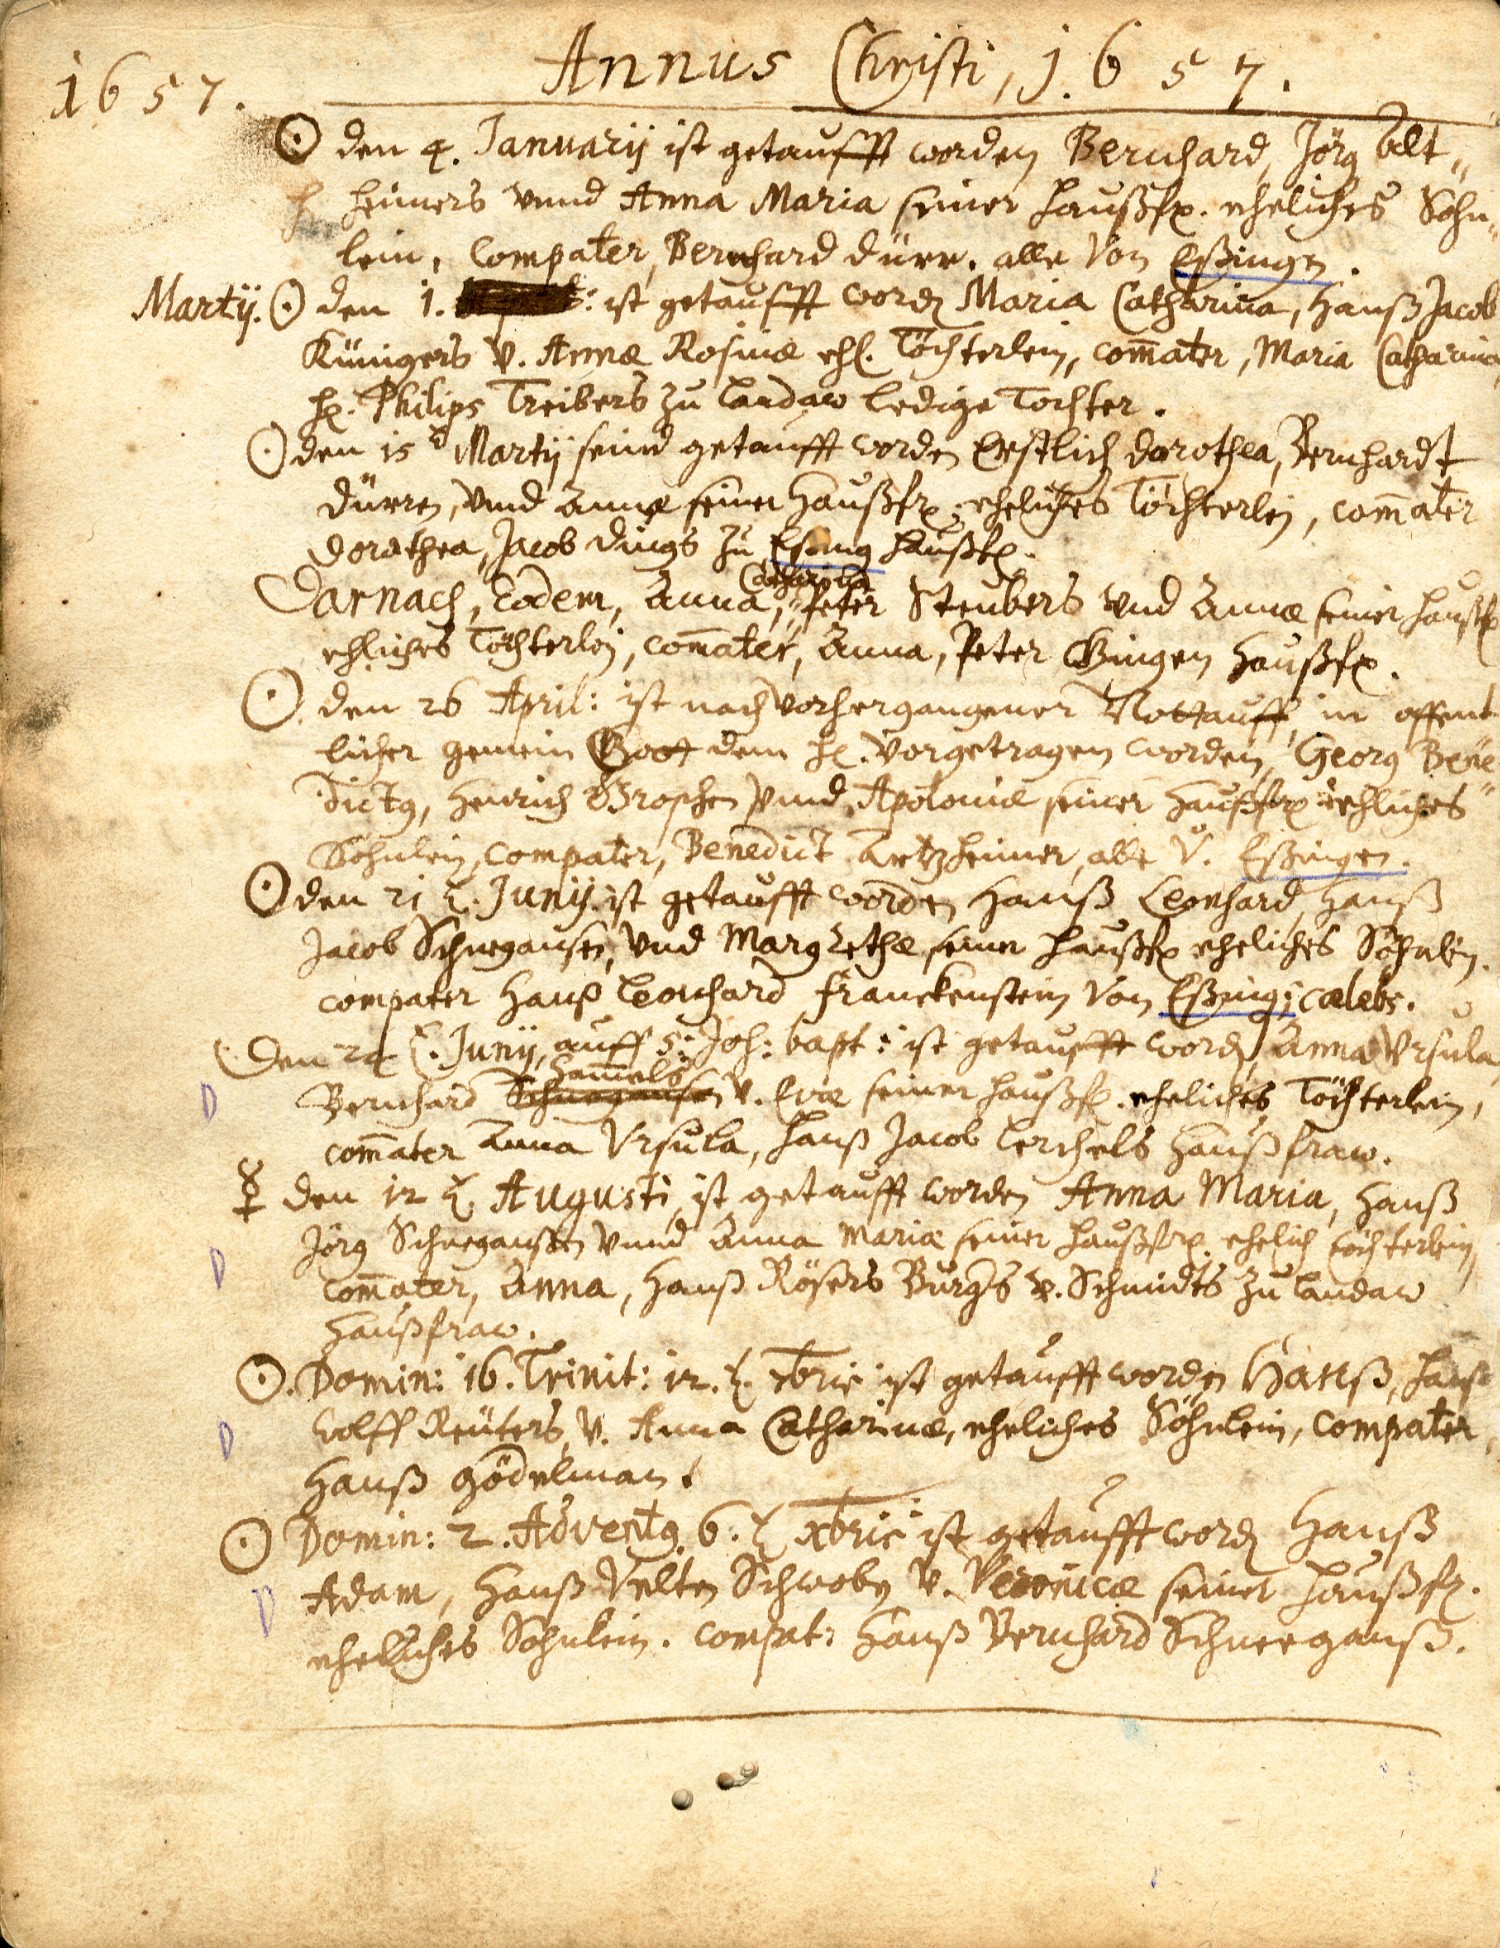 1657.
Annus Christi, 1657.
☉ den 4. Januarij ist getaufft worden Bernhard, Jörg Alt„
heimers vnnd Anna Maria seiner Haußfr. eheliches Söhn„
lein, Compater, Bernhard Dürr. alle von Eßingen.
Martij. ☉ den 1. : ist getaufft word Maria Catharina, Hanß Jacob
Künigers v. Annæ Rosinæ ehl. Töchterlein, com̄ater, Maria Catharina
H. Philips Treibers zu Landaw ledige Tochter.
☉ den 15 Martij seind getaufft worden Erstlich Dorothea, Bernhardt
Dürren, vnnd Annæ seiner Haußfr. eheliches Töchterlej, com̄ater
Dorothea, Jacob Dings zu Eßing Haußfr.
Catharina
Darnach, Eodem, Anna, Peter Steubers vnd Annæ seiner Haußfr
ehliches Töchterlej, com̄ater, Anna, Peter Haußfr.
☉ den 26 April: ist nach vorhergangener Nottauff, in offent
licher gemein Gott dem H. vorgetragen worden, Georg Bene„
dictg, Henrich Groschen vnnd Apoloniæ seiner Haußfr ehliches
Söhnlein, Compater, Benedict Artzheimer, alle v. Eßingen.
☉ den 21 Junij ist getaufft worden Hanß Leonhard, Hanß
Jacob Schnegansen, vnd Margrethæ seiner Haußfr eheliches Söhnlin.
compater Hanß Leonhard Franckenstein von Eßing; cælebs.
Den 24 Junij, auff S: Joh: bapt: ist getaufft word, Anna Vrsula,
Ham̄els
Bernhard Schnegansen v. Evæ seiner Haußfr. eheliches Töchterlein,
com̄ater Anna Vrsula, Hanß Jacob Lerchels Haußfraw.
☿ den 12 Augusti ist getaufft worden Anna Maria, Hanß
Jörg Schnegansen vnnd Anna Mariæ seiner Haußfr. ehelich töchterlein,
com̄ater, Anna, Hanß Rösers Burgers v. Schmidts zu Landaw
Haußfraw.
☉. Domin: 16. Trinit: 12. 7bris ist getaufft worden Hanß, Hanß
Wolff Reüters, v. Anna Catharinæ, eheliches Söhnlein, Compater,
Hanß Gödelman.
☉ Domin: 2. Adventg. 6. xbris ist getaufft word Hanß
Adam, Hanß Velten Schwoben v. Veronicæ seiner Haußfr.
eheliches Söhnlein. Compat: Hanß Bernhard Schneeganß.